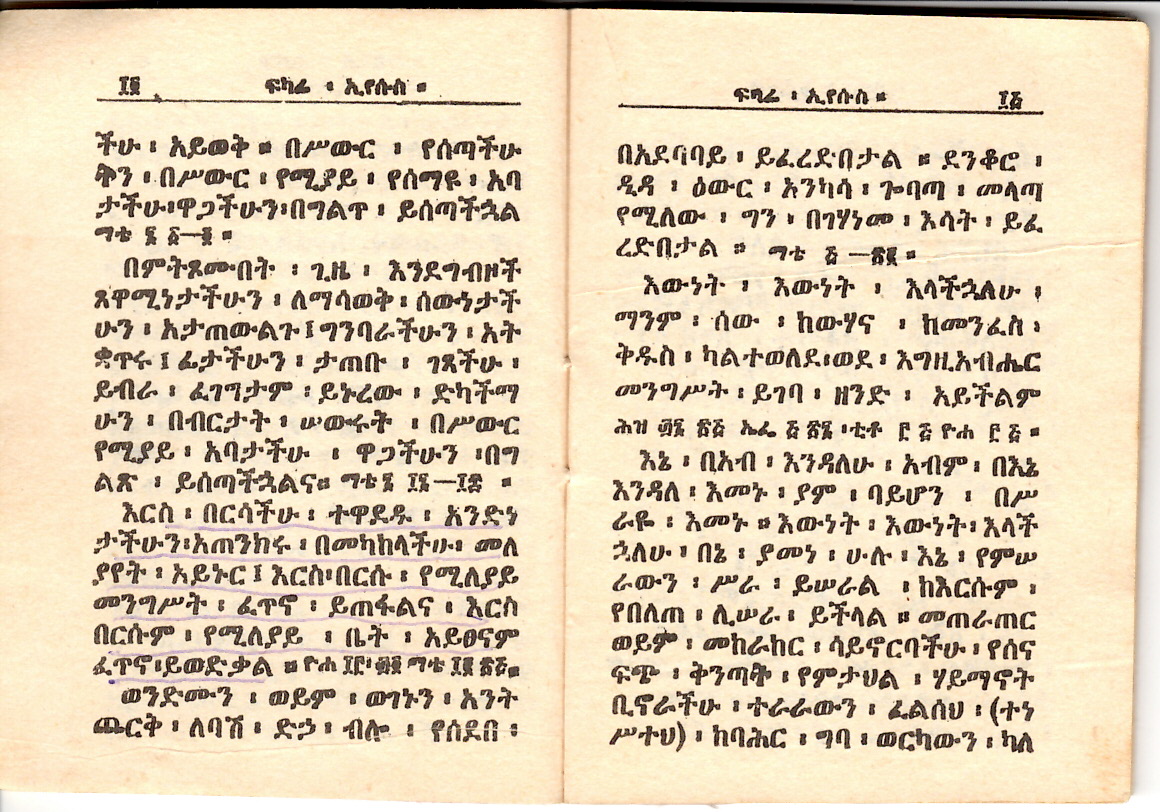 ፲፬ ፍካሬ ፡ ኢየሱስ ።
ችሁ ፡ አይወቅ ። በሥውር ፡ የሰጣችሁ
ቅን ፡ በሥውር ፡ የሚያይ ፡ የሰማዩ ፡ አባ
ታችሁ፡ዋጋችሁን፡በግልጥ ፡ ይሰጣችኋል
ማቴ ፮ ፩—፬ ።
በምትጾሙበት ፡ ጊዜ ፡ እንደግብዞች
ጸዋሚነታችሁን ፡ ለማሳወቅ ፡ ሰውነታች
ሁን ፡ አታጠውልጉ ፤ ግንባራችሁን ፡ አት
ቋጥሩ ፤ ፊታችሁን ፡ ታጠቡ ፡ ገጻችሁ ፡
ይብራ ፡ ፈገግታም ፡ ይኑረው ፡ ድካችማ
ሁን ፡ በብርታት ፡ ሠውሩት ፡ በሥውር
የሚያይ ፡ አባታችሁ ፡ ዋጋችሁን ፡በግ
ልጽ ፡ ይሰጣችኋልና። ማቴ ፮ ፲፮—፲፰ ።
እርስ ፡ በርሳችሁ ፡ ተዋደዱ ፡ አንድነ
ታችሁን፡አጠንክሩ ፡ በመካከላችሁ፡ መለ
ያየት ፡ አይኑር ፤ እርስ፡በርሱ ፡ የሚለያይ
መንግሥት ፡ ፈጥኖ ፡ ይጠፋልና ፡ እርስ
በርሱም ፡ የሚለያይ ፡ ቤት ፡ አይፀናም
ፈጥኖ፡ይወድቃል ። ዮሐ ፲፫፡ ፴፬ ማቴ ፲፪ ፳፭።
ወንድሙን ፡ ወይም ፡ ወገኑን ፡ አንት
ጨርቅ ፡ ለባሽ ፡ ድኃ ፡ ብሎ ፡ የሰደበ ፡
ፍካሬ ፡ ኢየሱስ ። ፲፭
በአደባባይ ፡ ይፈረድበታል ። ደንቆሮ ፡
ዲዳ ፡ ዕውር ፡ አንካሳ ፡ ጐባጣ ፡ መላጣ
የሚለው ፡ ግን ፡ በገሃነመ ፡ እሳት ፡ ይፈ
ረድበታል ። ማቴ ፭ —፳፪ ።
እውነት ፡ እውነት ፡ እላችኋለሁ ፡
ማንም ፡ ሰው ፡ ከውሃና ፡ ከመንፈስ ፡
ቅዱስ ፡ ካልተወለደ፡ወደ ፡ እግዚአብሔር
መንግሥት ፡ ይገባ ፡ ዘንድ ፡ አይችልም
ሕዝ ፴፮ ፳፭ ኤፌ ፭ ፳፮ ፡ቲቶ ፫ ፭ ዮሐ ፫ ፭ ።
እኔ ፡ በአብ ፡ እንዳለሁ ፡ አብም ፡ በእኔ
እንዳለ ፡ እመኑ ፡ ያም ፡ ባይሆን ፡ በሥ
ራዬ ፡ እመኑ ። እውነት ፡ እውነት፡ እላች
ኋለሁ ፡ በኔ ፡ ያመነ ፡ ሁሉ ፡ እኔ ፡ የምሠ
ራውን ፡ ሥራ ፡ ይሠራል ፡ ከእርሱም ፡
የበለጠ ፡ ሊሠራ ፡ ይችላል ። መጠራጠር
ወይም ፡ መከራከር ፡ ሳይኖርባችሁ ፡ የሰና
ፍጭ ፡ ቅንጣት ፡ የምታህል ፡ ሃይማኖት
ቢኖራችሁ ፡ ተራራውን ፡ ፈልሰህ ፡ (ተነ
ሥተህ) ፡ ከባሕር ፡ ግባ ፡ ወርካውን ፡ ካለ